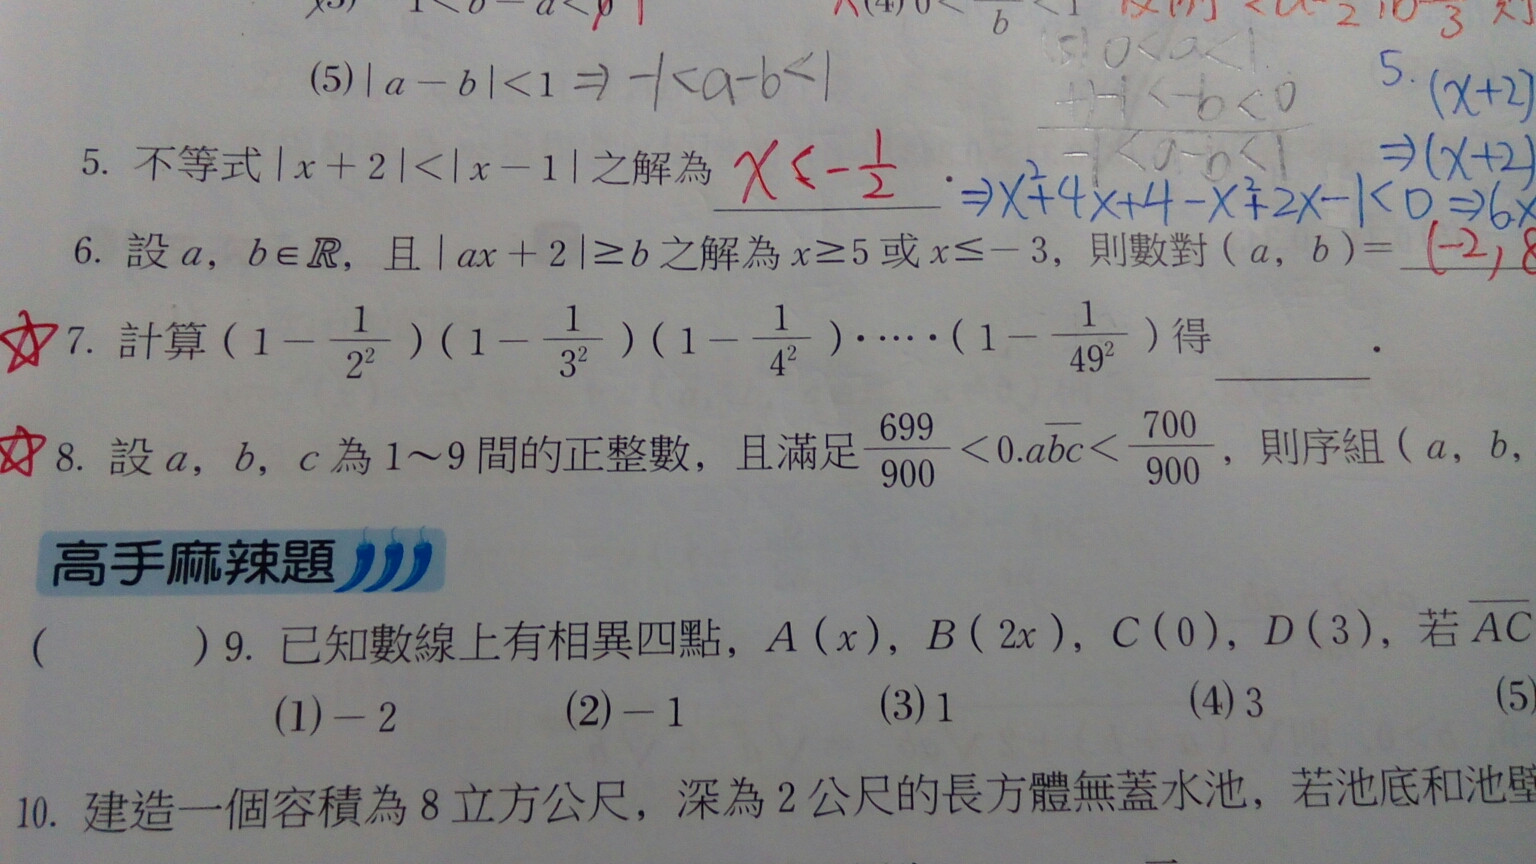 (5)|a−b|<1 ⇒ −1<a−b<1
(5) 0<a<1
+) −1<−b<0
−1<a−b<1
5. (x+2)
⇒(x+2)
5. 不等式|x+2|<|x−1|之解為 x<−1/2 .
⇒x²+4x+4−x²+2x−1<0 ⇒6x
6. 設a，b∈ℝ，且|ax+2|≥b之解為x≥5或x≤−3，則數對(a，b)= (−2, 8
☆7. 計算(1−1/2²)(1−1/3²)(1−1/4²)·····(1−1/49²)得 .
☆8. 設a，b，c為1～9間的正整數，且滿足699/900<0.a\overline{bc}<700/900，則序組(a，b，
高手麻辣題
( )9. 已知數線上有相異四點，A(x)，B(2x)，C(0)，D(3)，若\overline{AC}
(1)−2 (2)−1 (3)1 (4)3 (5)
10. 建造一個容積為8立方公尺，深為2公尺的長方體無蓋水池，若池底和池壁